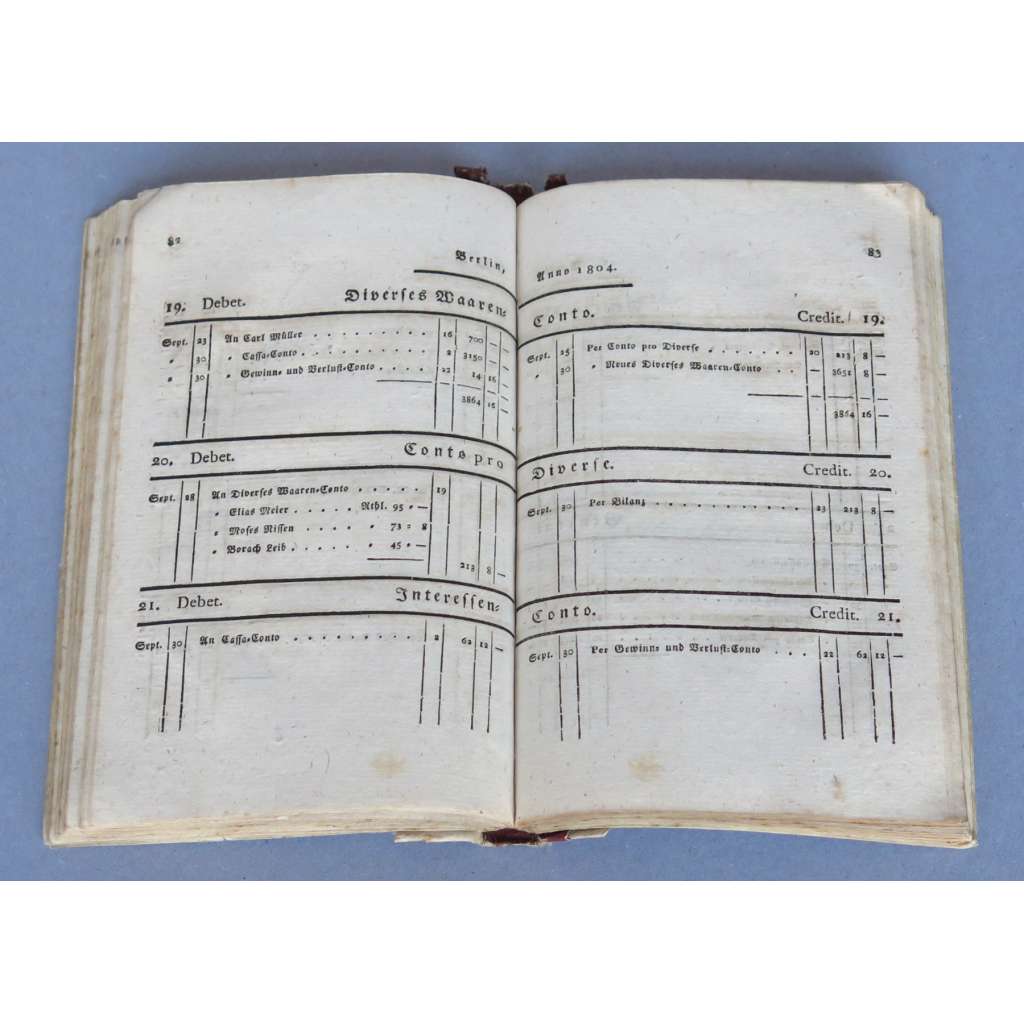 82
Berlin,
19. Debet. Diverses Waaren-
Sept. 23 An Carl Müller . . . . . . . . . 16 700 — —
„ 30 „ Cassa-Conto . . . . . . . . . 2 3150 — —
„ 30 „ Gewinn- und Verlust-Conto . . . . 22 14 16 —
3864 16 —
20. Debet. Conto pro
Sept. 28 An Diverses Waaren-Conto . . . . . 19
„ Elias Meier . . . . . Rthl. 95 „ —
„ Moses Nissen . . . . . „ 73 „ 8
„ Borach Leib . . . . . . „ 45 „ —
213 8 —
21. Debet. Interessen-
Sept. 30 An Cassa-Conto . . . . . . . . . 2 62 12 —
83
Anno 1804.
Conto. Credit. 19.
Sept. 25 Per Conto pro Diverse . . . . . . . 20 213 8 —
„ 30 „ Neues Diverses Waaren-Conto . . — 3651 8 —
3864 16 —
Diverse. Credit. 20.
Sept. 30 Per Bilanz . . . . . . . . . . . 23 213 8 —
Conto. Credit. 21.
Sept. 30 Per Gewinn- und Verlust-Conto . . . 22 62 12 —